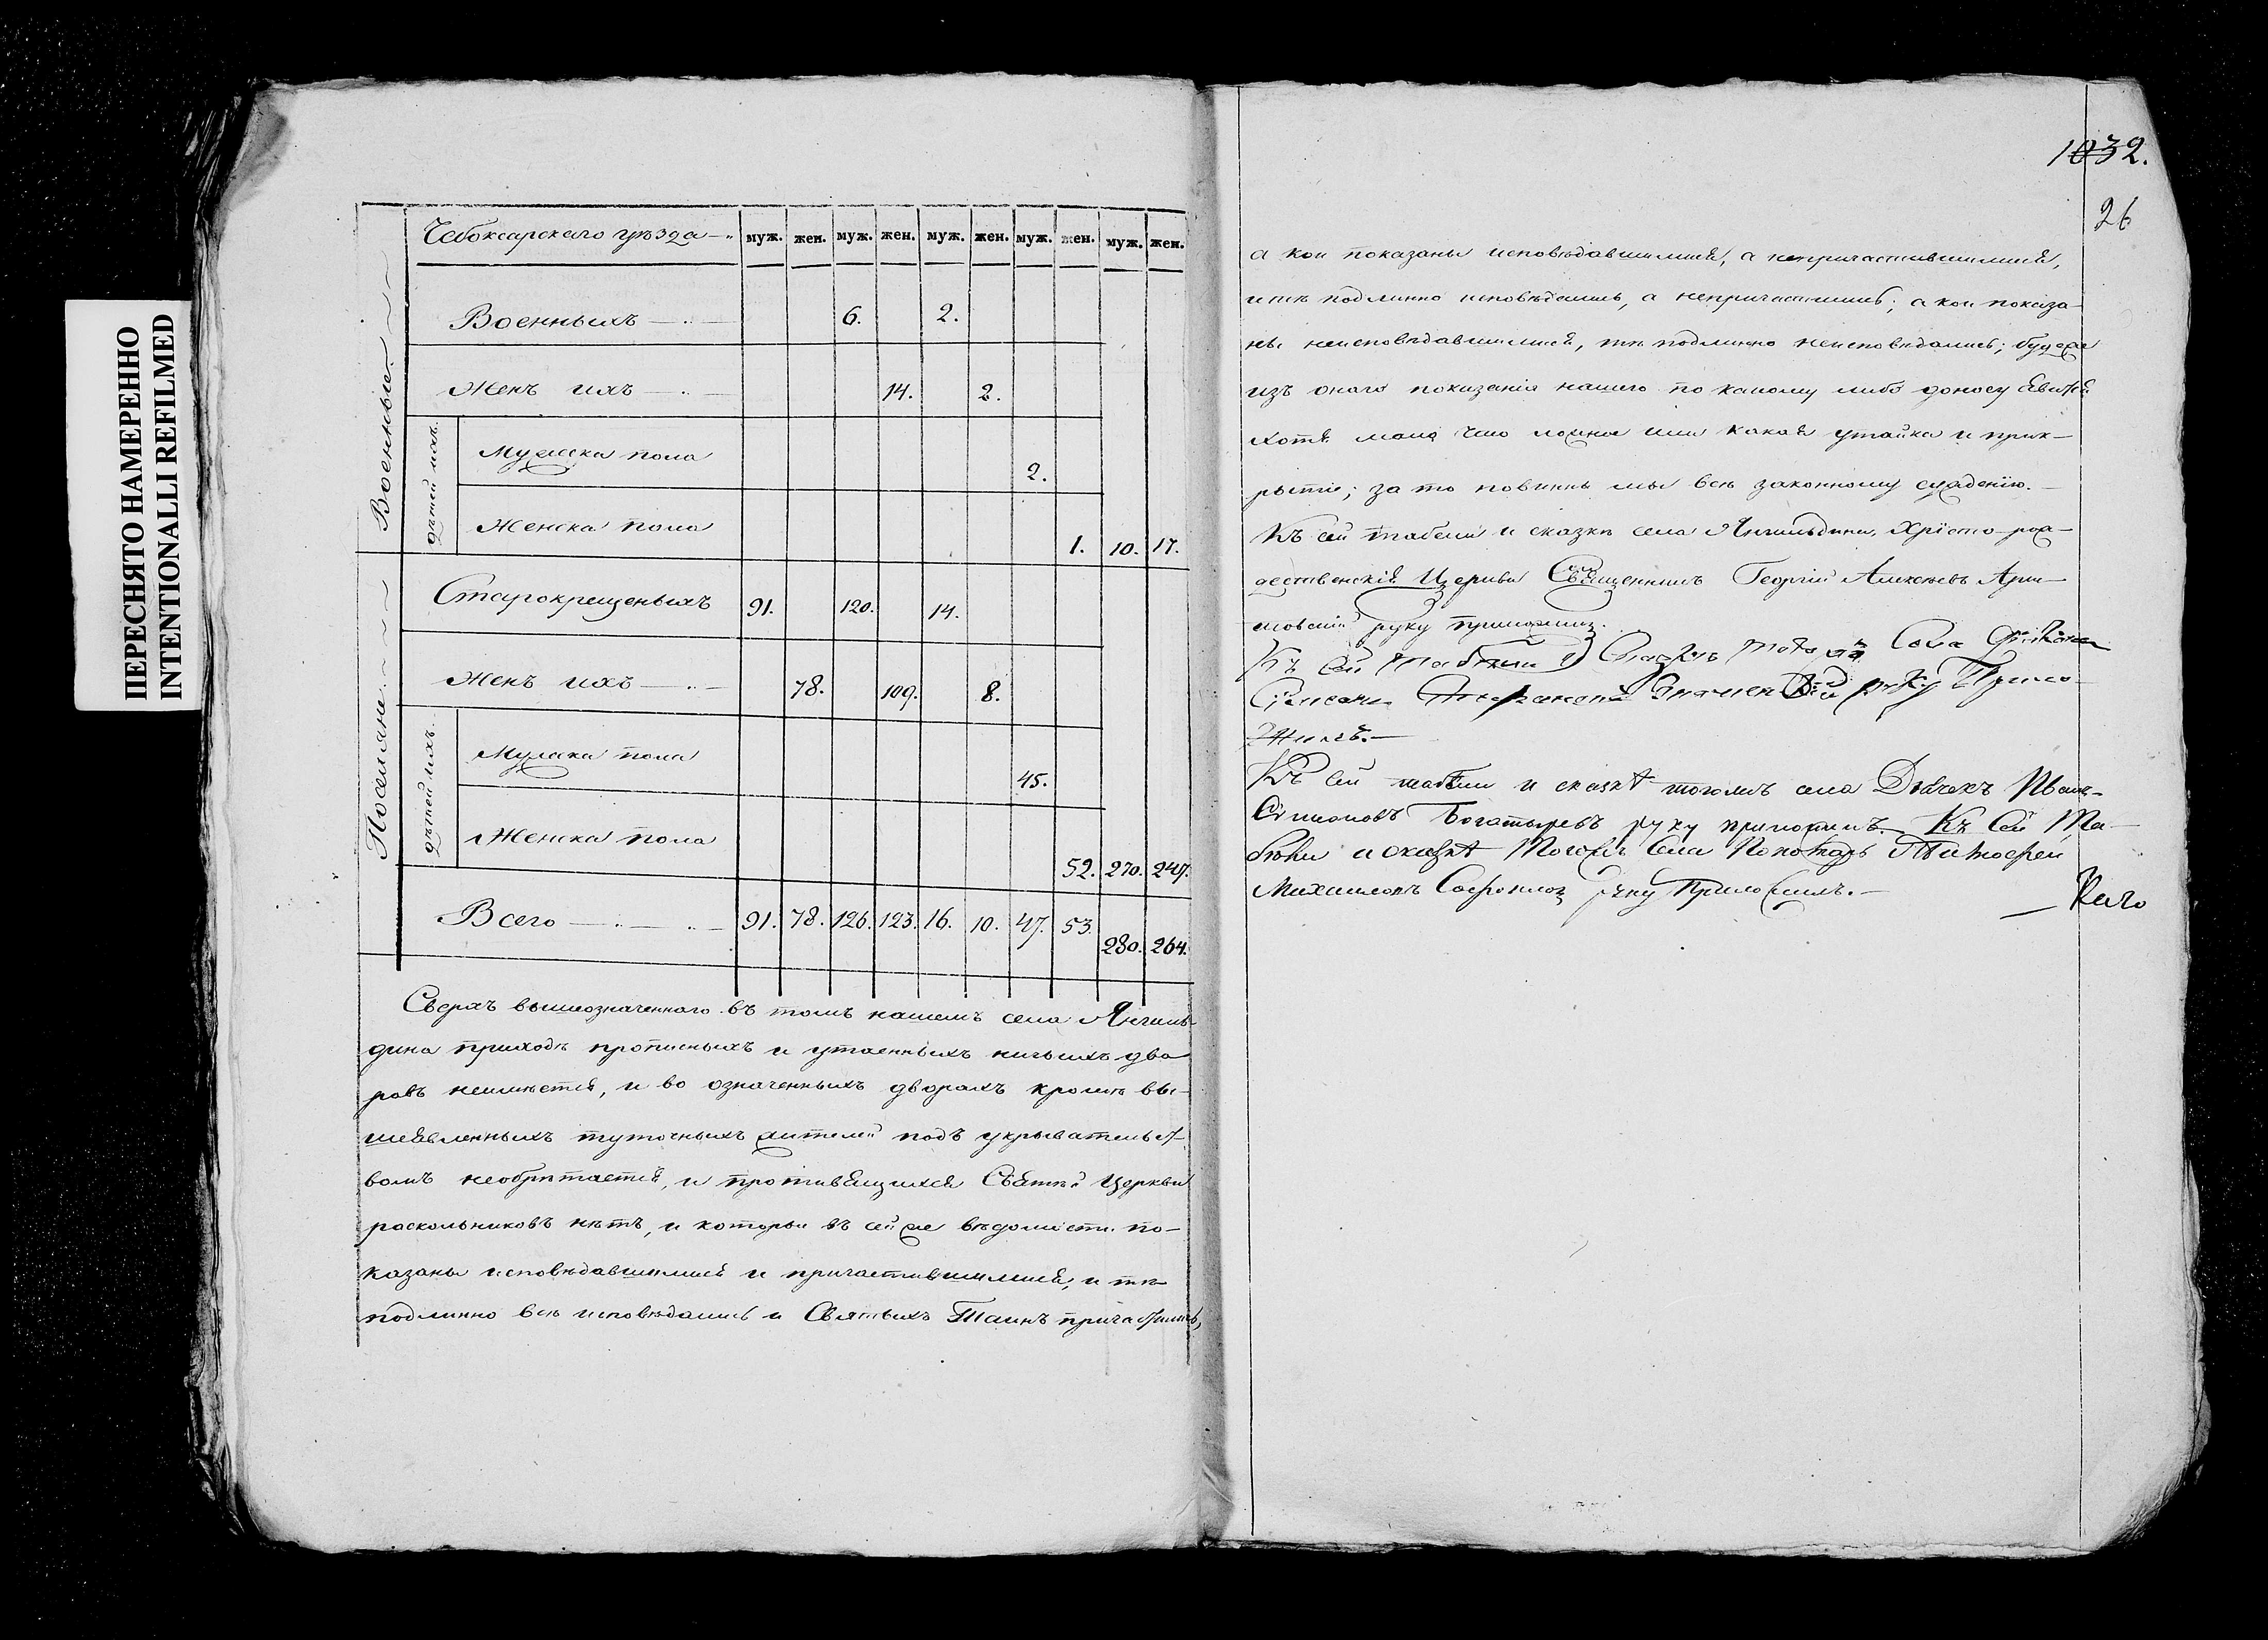 ПЕРЕСНЯТО НАМЕРЕННО
INTENTIONALLI REFILMED
Чебоксарскаго уѣзда муж. жен. муж. жен. муж. жен. муж. жен. муж. жен.
Военные
Военныхъ 6. 2.
Женъ ихъ 14. 2.
дѣтей ихъ
Мужеска пола 2.
Женска пола 1. 10. 17.
Поселяне
Старокрещеныхъ 91. 120. 14.
Женъ ихъ 78. 109. 8.
дѣтей ихъ
Мужеска пола 45.
Женска пола 52. 270. 247.
Всего 91. 78. 126. 123. 16. 10. 47. 53. 280. 264.
Сверхъ вышеозначеннаго въ томъ нашемъ села Янгиль-
дина приходѣ прописныхъ и утаенныхъ ничьихъ дво
ровъ неимѣется, и во означенныхъ дворахъ кромѣ вы-
шеявленныхъ туточныхъ жителей подъ укрывательст-
вомъ необрѣтается, и противящихся Святѣй Церкви
раскольниковъ нѣтъ, и которыи въ сей же вѣдомости по-
казаны исповѣдавшимися и причастившимися, и тѣ
подлинно всѣ исповѣдались и Святыхъ Таинъ причастились,
1032.
26
а кои показаны исповѣдавшимися, а непричастившимися,
и тѣ подлинно исповѣдались, а непричастились; а кои показа-
ны неисповѣдавшимися, тѣ подлинно неисповѣдались; буде же
изъ онаго показанія нашего по какому либо доносу явится
хотя мало что ложное или какая утайка и прик-
рытіе; за то повинны мы всѣ законному сужденію.
Къ сей табели и сказкѣ села Янгильдина, Христо-рож-
дественскія Церкви Священникъ Георгій Алексѣевъ
руку приложилъ.
Къ сей табели и сказкѣ тогожъ села
руку прило-
жилъ.
Къ сей табели и сказкѣ тогожъ села Дьячекъ Иванъ
Симіоновъ Богатыревъ руку приложилъ. Къ сей та-
бели и сказкѣ тогожъ села Пономарь Тимофей
Михаиловъ руку приложилъ.